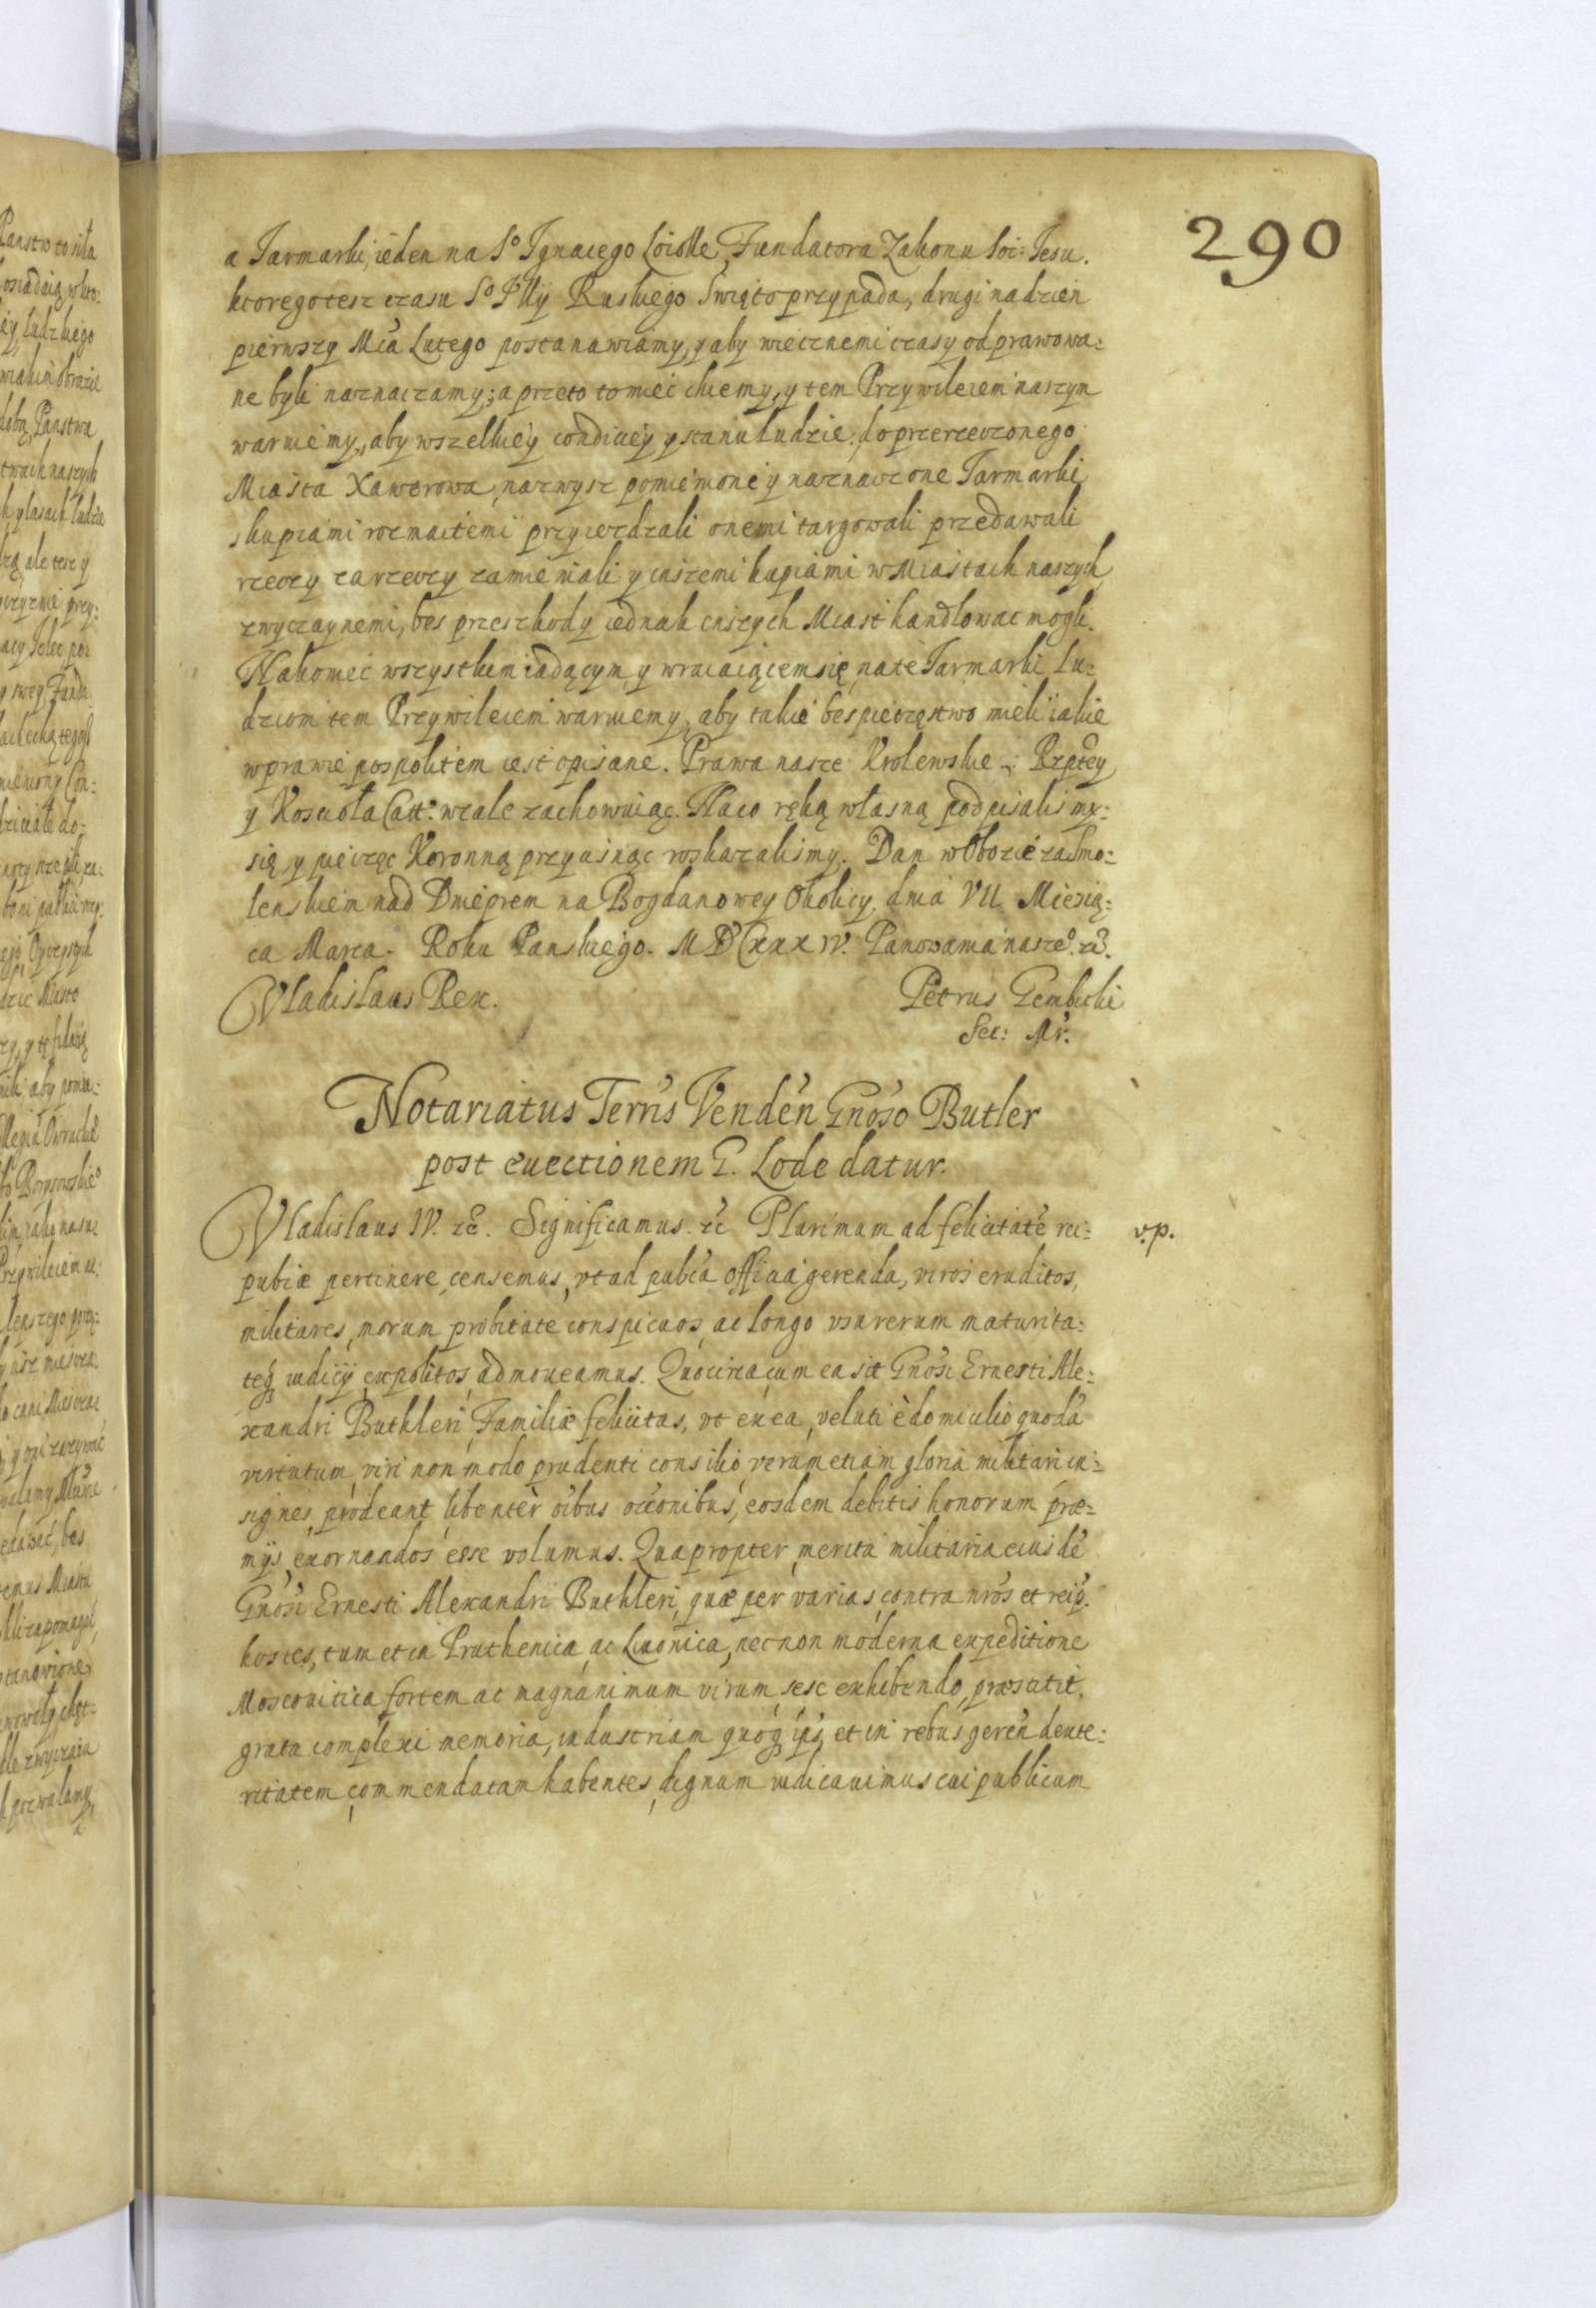 290
a Jarmarki, ieden na S° Ignacego Loiolle, Fundatora Zakonu Soc: Iesu.
ktoregotesz czasu S° Illÿ Ruskiego Święto przypada, drugi nadzien
pierwszy Mcâ Lutego postanawiamy, y aby wiecznemi czasy odprawowa=
ne byli naznaczamy; a przeto to mieć chcemy, y tem Przywileiem naszym
waruiemy, aby wszelkiey condiciey y stanu Ludzie, do przerzeczonego
Miasta Xawerowa, nazwysz pomienione y naznaczone Jarmarki
s kupiami rozmaitemi przyiezdzali onemi targowali przedawali
rzeczy za rzeczy zamieniali y inszemi kupiami w Miastach naszych
zwyczaynemi, bes przeszkody iednak inszych Miast handlowac mogli.
Nakoniec wszystkim iadącym, y wracaiącem się, na te Jarmarki Lu=
dziom tem Przywileiem waruemy, aby takie bespieczęstwo mieli iakie
w prawie pospolitem iest opisane. Prawa nasze Krolewskie Rzptey
y Koscioła Catt: wcale zachowuiąc. Na co ręką własną podpisalismy=
się y pieczęc Koronną przycisnąc roskazalismy. Dan w Obozie za Smo=
lenskiem nad Dnieprem na Bogdanowey Okolicy. dnia VII Miesią=
ca Marca. Roku Panskiego. MDCXXXIV. Panowania nasze° &c.
Vladislaus Rex. Petrus Gembicki
Sec: Mr.
Notariatus Terris Venden Gnoso Butler
post euectionem G. Lode datur.
Vladislaus IV. &c. Significamus. &c Plurimum ad felicitatē rei= v.p.
pubcæ pertinere censemus, vt ad pubca Officia gerenda, viros eruditos,
militares, morum probitate conspicuos, ac longo vsu rerum maturita=
teq iudicij expolitos, admoueamus. Quocirca cum ea sit Gnosi Ernesti Ale=
xandri Buthleri, Familiæ felicitas, vt ex ea, veluti è domicilio quodā
virtutum, viri non modo prudenti consilio verum etiam gloria militari in=
signes prodeant, libentèr oibus occonibus, eosdem debitis honorum præ=
mijs exornandos esse volumus. Quapropter merita militaria eiusdē
Gnosi Ernesti Alexandri Buthleri, quæ per varias contra nros et reip.
hostes, tum et in Pruthenica, ac Liuonica, nec non moderna expeditione
Moscouitica fortem ac magnanimum virum sese exhibendo præstitit,
grata complexi memoria, industriam quoq ips, et in rebus geren dexte=
ritatem commendatam habentes, dignum iudicauimus cui publicum